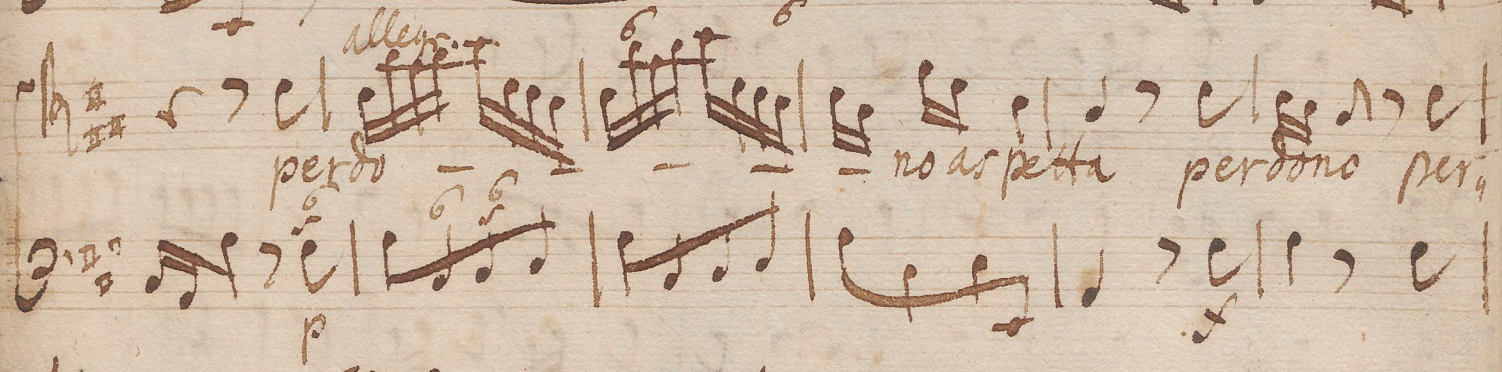 allegr.
6 6
perdo – – – – – no aspetta perdono per
6 6 6
p f